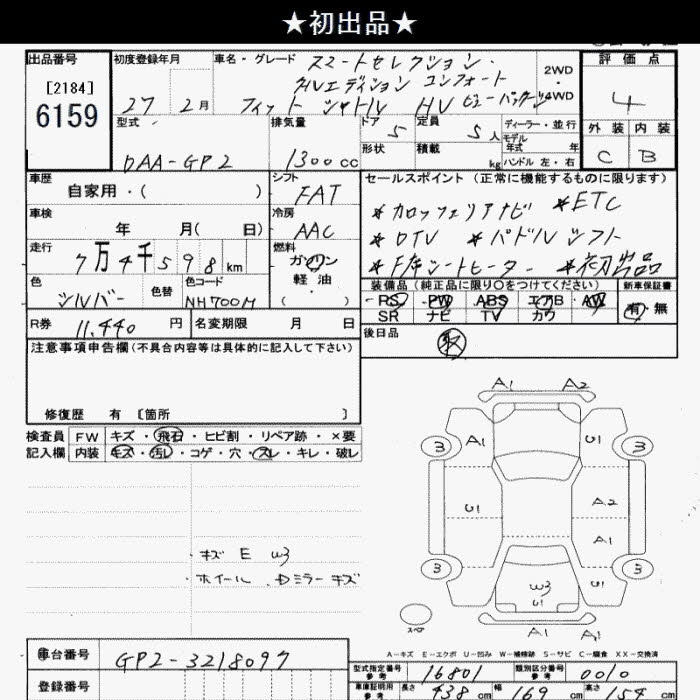 ★初出品★
出品番号
[2184]
6159
初度登録年月
27 2月
車名・グレード
スマートセレクション・
クルエディション コンフォート
フィット シャトル HV ビューパッケージ
2WD
4WD
評価点
4
外装 内装
C B
型式
DAA-GP2
排気量
1300cc
ドア 5
定員 5人
形状
積載 kg
ディーラー・並行
モデル年式 年
ハンドル 左・右
車歴
自家用・( )
シフト
FAT
車検
年 月( 日)
冷房
AAC
走行
7万4千598km
燃料
ガソリン
軽油
・( )
色
シルバー
色替
色コード
NH700M
R券 11,440円
名変期限 月 日
セールスポイント (正常に機能するものに限ります)
*カロッツェリアナビ *ETC
*DTV *パドルシフト
*F席シートヒーター *初出品
装備品(純正品に限り○をつけてください)
PS PW ABS エアB AW
SR ナビ TV カワ
新車保証書
有・無
後日品
取
注意事項申告欄(不具合内容等は具体的に記入して下さい)
修復歴 有 [箇所 ]
検査員
記入欄
FW キズ・飛石・ヒビ割・リペア跡・×要
内装 キズ・汚レ・コゲ・穴・スレ・キレ・破レ
・キズ E W3
・ホイール、Dミラーキズ
A1 A2
A1 U1
3 3
U1 A2
A1
3 3
W3 U1
U1
A1 A1
スペア
A-キズ E-エクボ U-凹み W-補修跡 S-サビ C-腐食 XX-交換済
車台番号 GP2-3218097
登録番号
型式指定番号 参考 16801
類別区分番号 参考 0010
車庫証明用 参考
長さ 438cm 幅 169cm 高さ 154cm